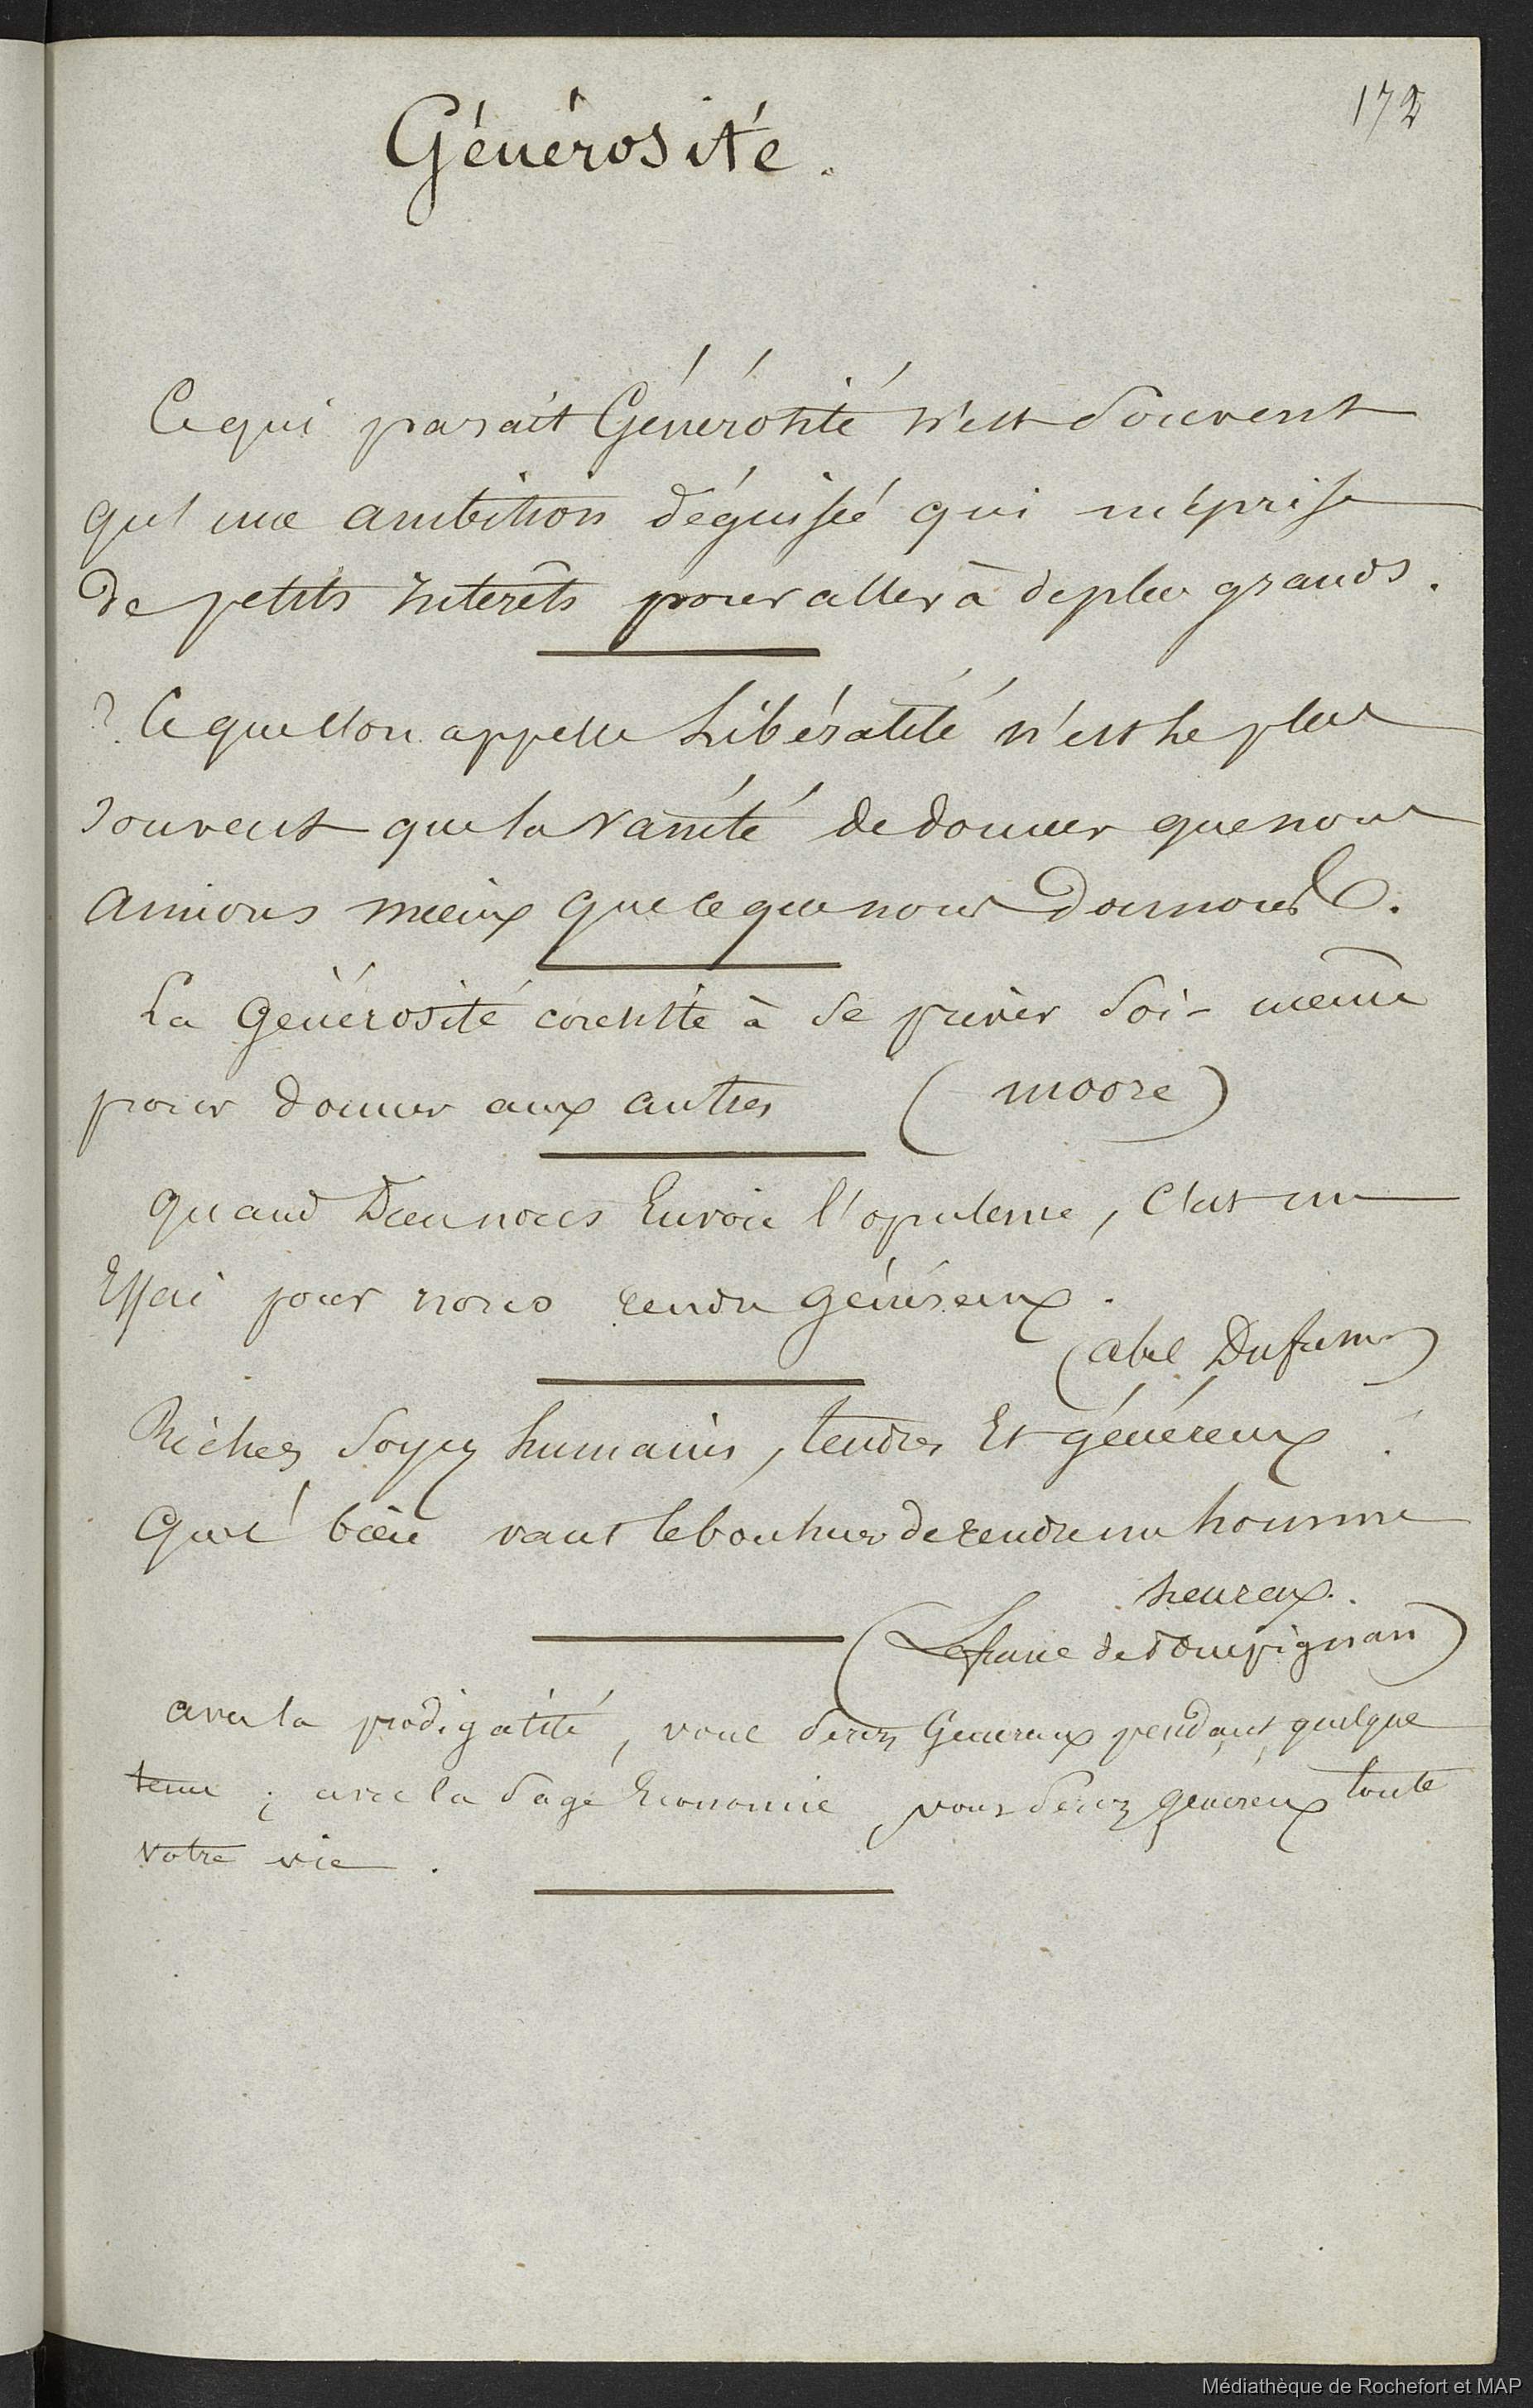 172
Générosité.
Ce qui parait Générosité n'est souvent
qu'une ambition déguisée qui méprise
de petits Interêts pour aller à de plus grands.
? Ce que l'on appelle Libéralité n'est le plus
souvent que la vanité de donner que nous
aimons mieux que ce que nous donnons.
La Générosité consiste à se priver soi-même
pour donner aux autres (moore)
quand Dieu nous Envoie l'opulence, c'est un
Essai pour nous rendre généreux.
(abel Dufresne)
Riches soyez humains, tendres Et généreux.
Quel bien vaut le bonheur de rendre un homme
heureux.
(Lefranc de Pompignan)
avec la prodigalité, vous serez Généreux pendant quelque
tems ; avec la sage Economie, vous serez généreux toute
votre vie.
Médiathèque de Rochefort et MAP